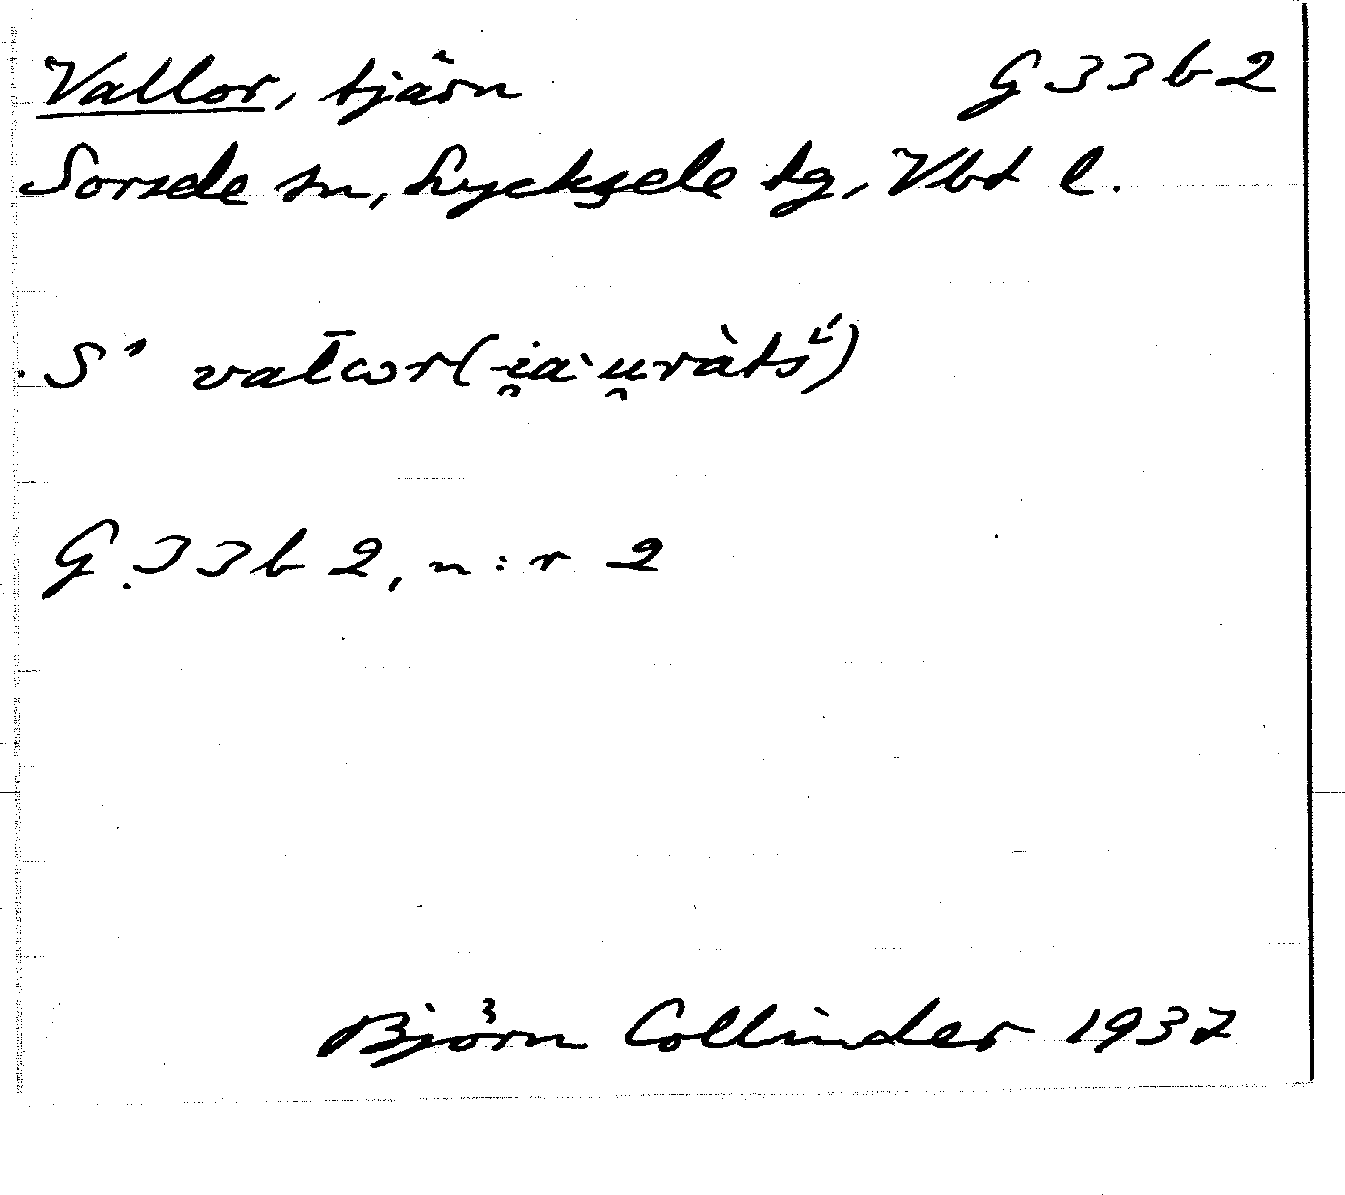 Vallor, tjärn G 33 b 2
Sorsele sn, Lycksele tg, Vbt l.
S' val̄ωr(-i̯a`u̯ràtś)
G 33 b 2, n:r 2
Björn Collinder 1937